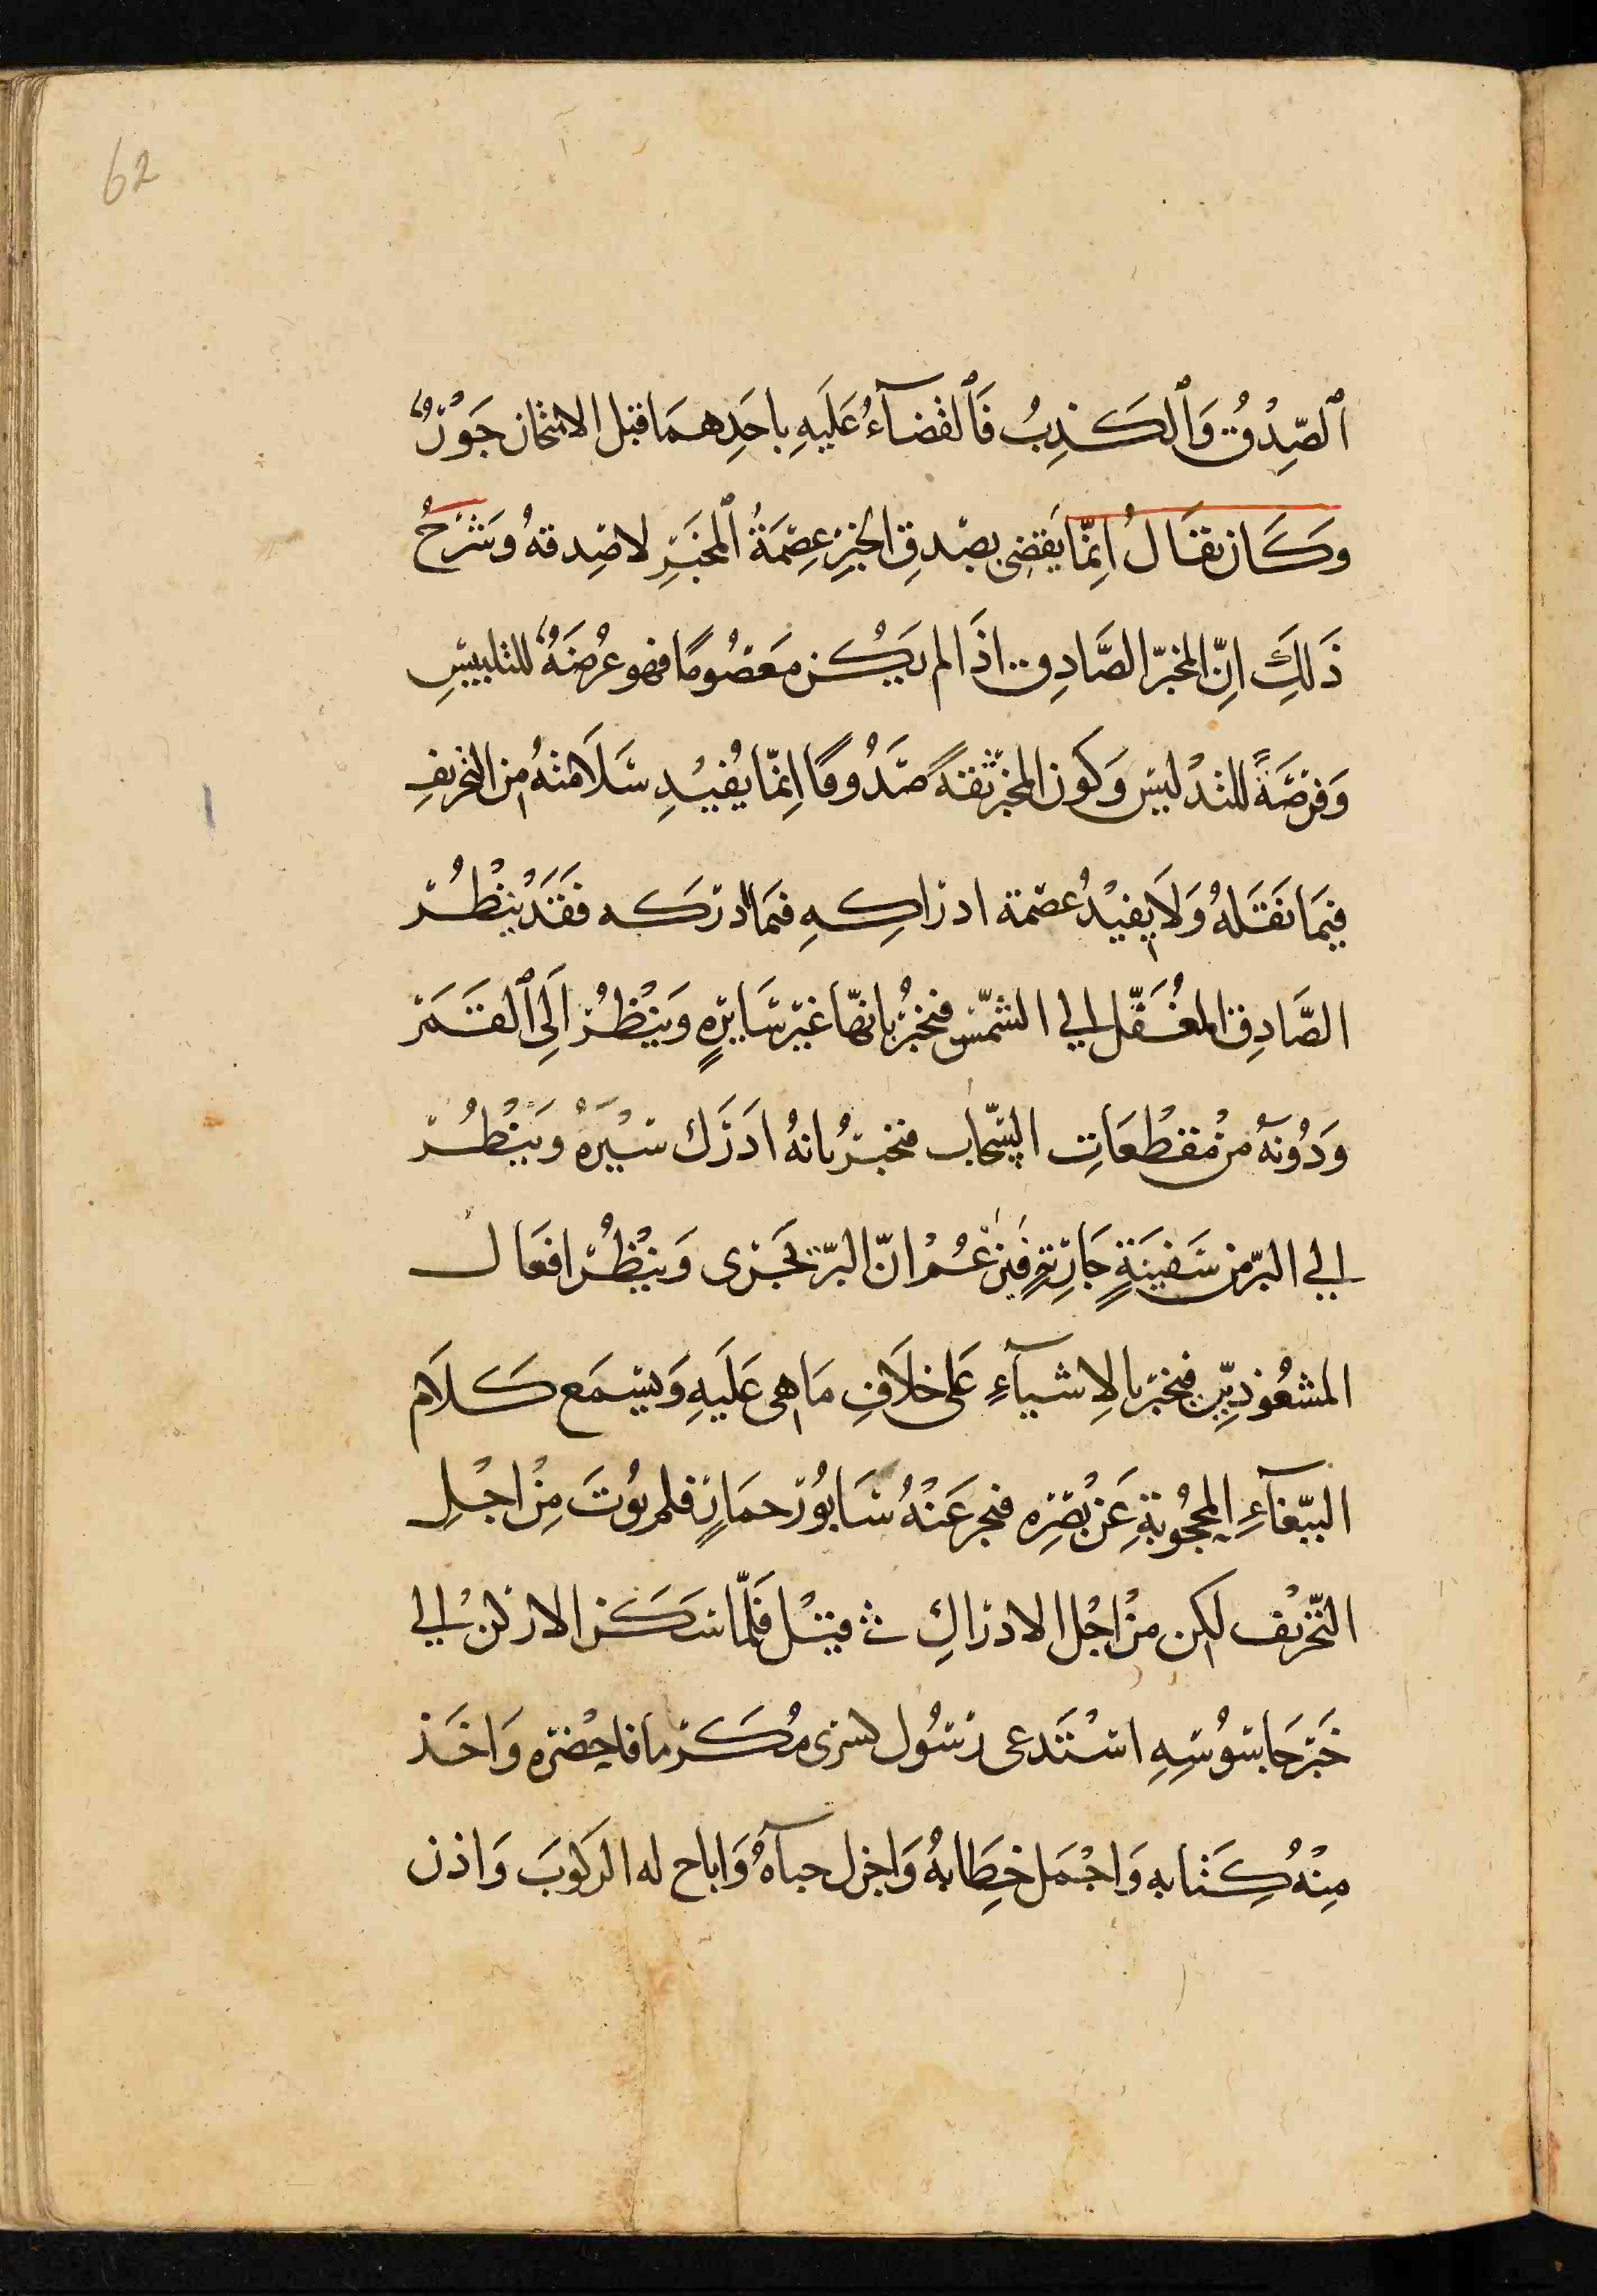 62
ٱلصِّدْقُ وَٱلكَذِبُ فَٱلقَضَآءُ عَلَيهِ باحَدِهمَا قبل الامتحان جَوْرٌ
وكَان يقَالُ اِنّمَا يَقضِى بصِدقِ الخبَرِ عِصْمَةُ ٱلمخبَرِ لا صِدقهُ وَشَرْحُ
ذَلِكَ اِنّ المخبرَ الصَّادِق اذَا لم يَكُن مَعصُومًا فهو عُرضَةٌ للتلبيسِ
وَفرصَةً للتدْليس وَكَون المخبر ثقةً صَدُوقًا اِنمّا يُفيْدِ سَلَامتهُ من التحْريفِ
فِيمَا نَقَلهُ وَلَا يفيْدُ عصْمَة ادرَاكِهِ فيمَا ادرَكه فَقَدْ يَنظُر
الصَّادِق المغُفَّل الي الشمّس فيخبرُ بانهّا غير سَايرةٍ وَيَنْظُرُ اَلِى ٱلقَمَر
وَدُونهُ من مْقطْعَاتِ السّحَاب فيخبرُ بانهُ ادَرَك سَيْرهُ ويَنْظُر
الي البرّ من سَفينَةٍ جَارِيةٍ فيَزعُمْ انّ البرّ تجَرْى وَينْظُرْ افعَال
المشعُوذِيِّن فيخبر بالاِشيَآءِ عَلى خلَافِ مَا هى عَلَيهِ وَيسْمَع كَلَام
الببّغَآءِ المحجُوبَةِ عَن بْصَرِه فيخبر عَنْهُ سَابُور حمَارٍ فلم يوُتَ مِنْ اجْلِ
التّحْريْف لكن مْن اجْل الادرَاكِ ثم قيْل فَلمّا سَكَن الازكن الي
خَبَر جَاسُوْسِهِ اسْتَدعى رَسُول كسرى مُكَرما فاحِضْرَه وَاخَذ
مِنْهُ كِتَابه وَاجْمَل خِطَابهُ وَاجزل حبَآهُ وَاباح له الركوبَ وَاذن